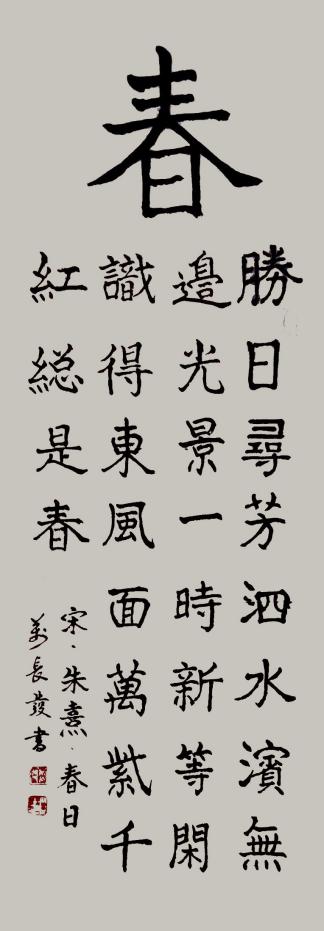 春
勝日尋芳泗水濱無
邊光景一時新等閑
識得東風面萬紫千
紅総是春
宋、朱熹、春日
萬長發書